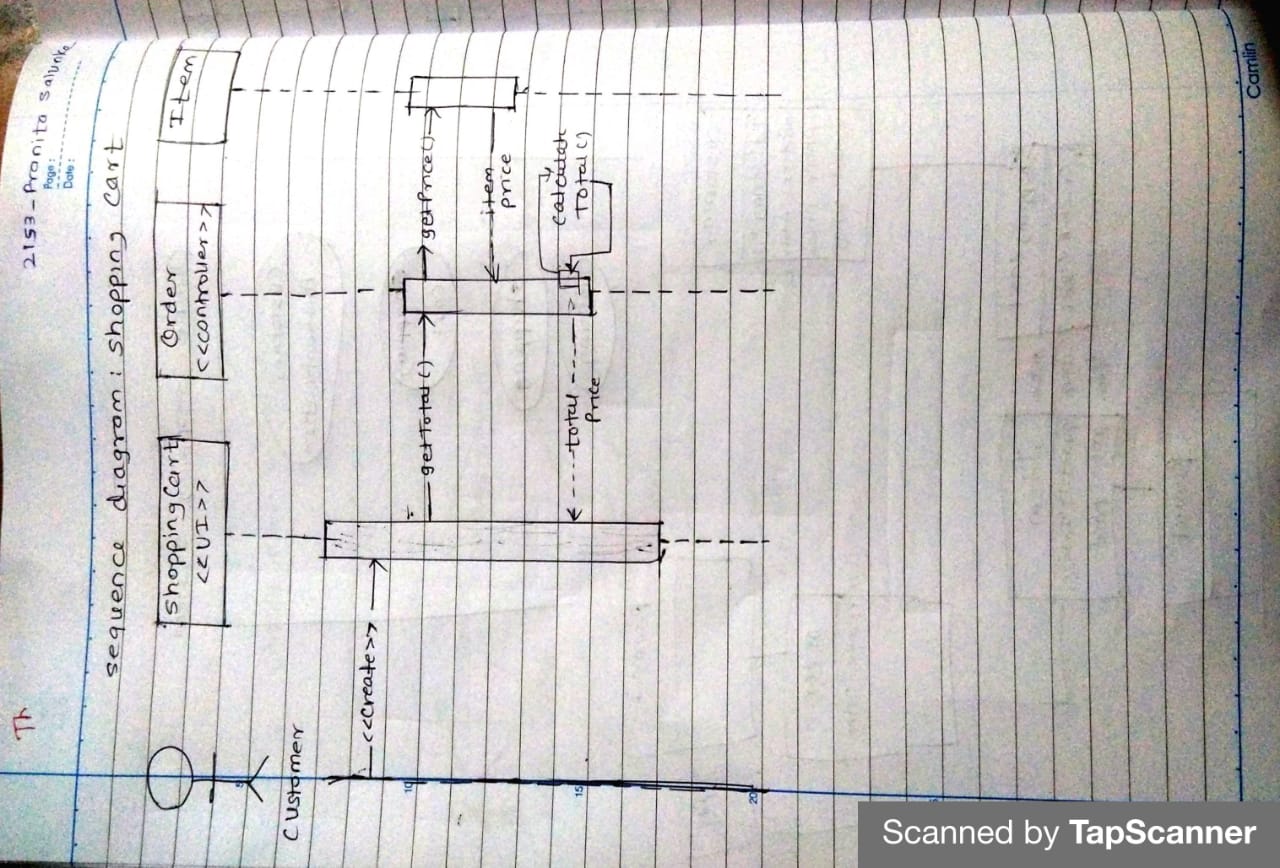 Th
2153-Pronita Salunke
Page:
Date:
sequence diagram: shopping cart
Customer
shoppingCart
<<UI>>
Order
<<controller>>
Item
<<create>>
getTotal()
getPrice()
item
price
calculate
Total()
total
Price
5
10
15
20
Camlin
Scanned by TapScanner